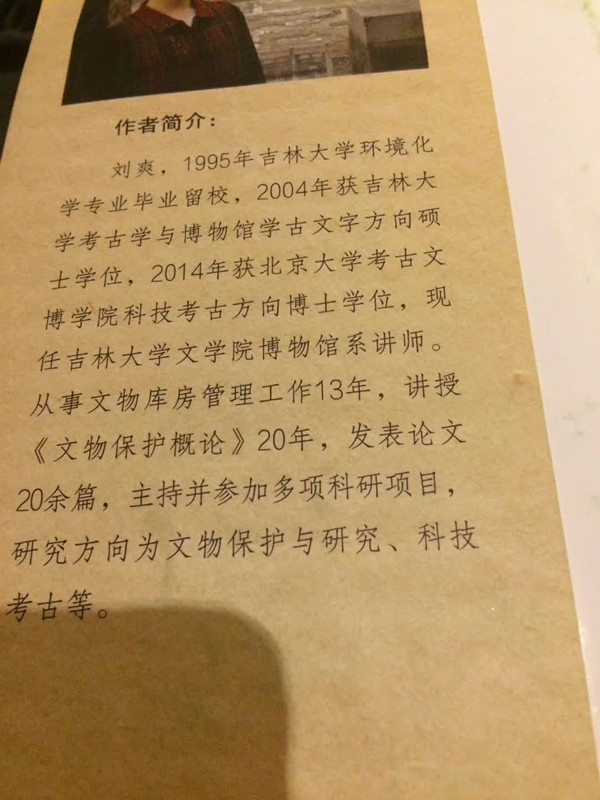 作者简介：
刘爽，1995年吉林大学环境化
学专业毕业留校，2004年获吉林大
学考古学与博物馆学古文字方向硕
士学位，2014年获北京大学考古文
博学院科技考古方向博士学位，现
任吉林大学文学院博物馆系讲师。
从事文物库房管理工作13年，讲授
《文物保护概论》20年，发表论文
20余篇，主持并参加多项科研项目，
研究方向为文物保护与研究、科技
考古等。